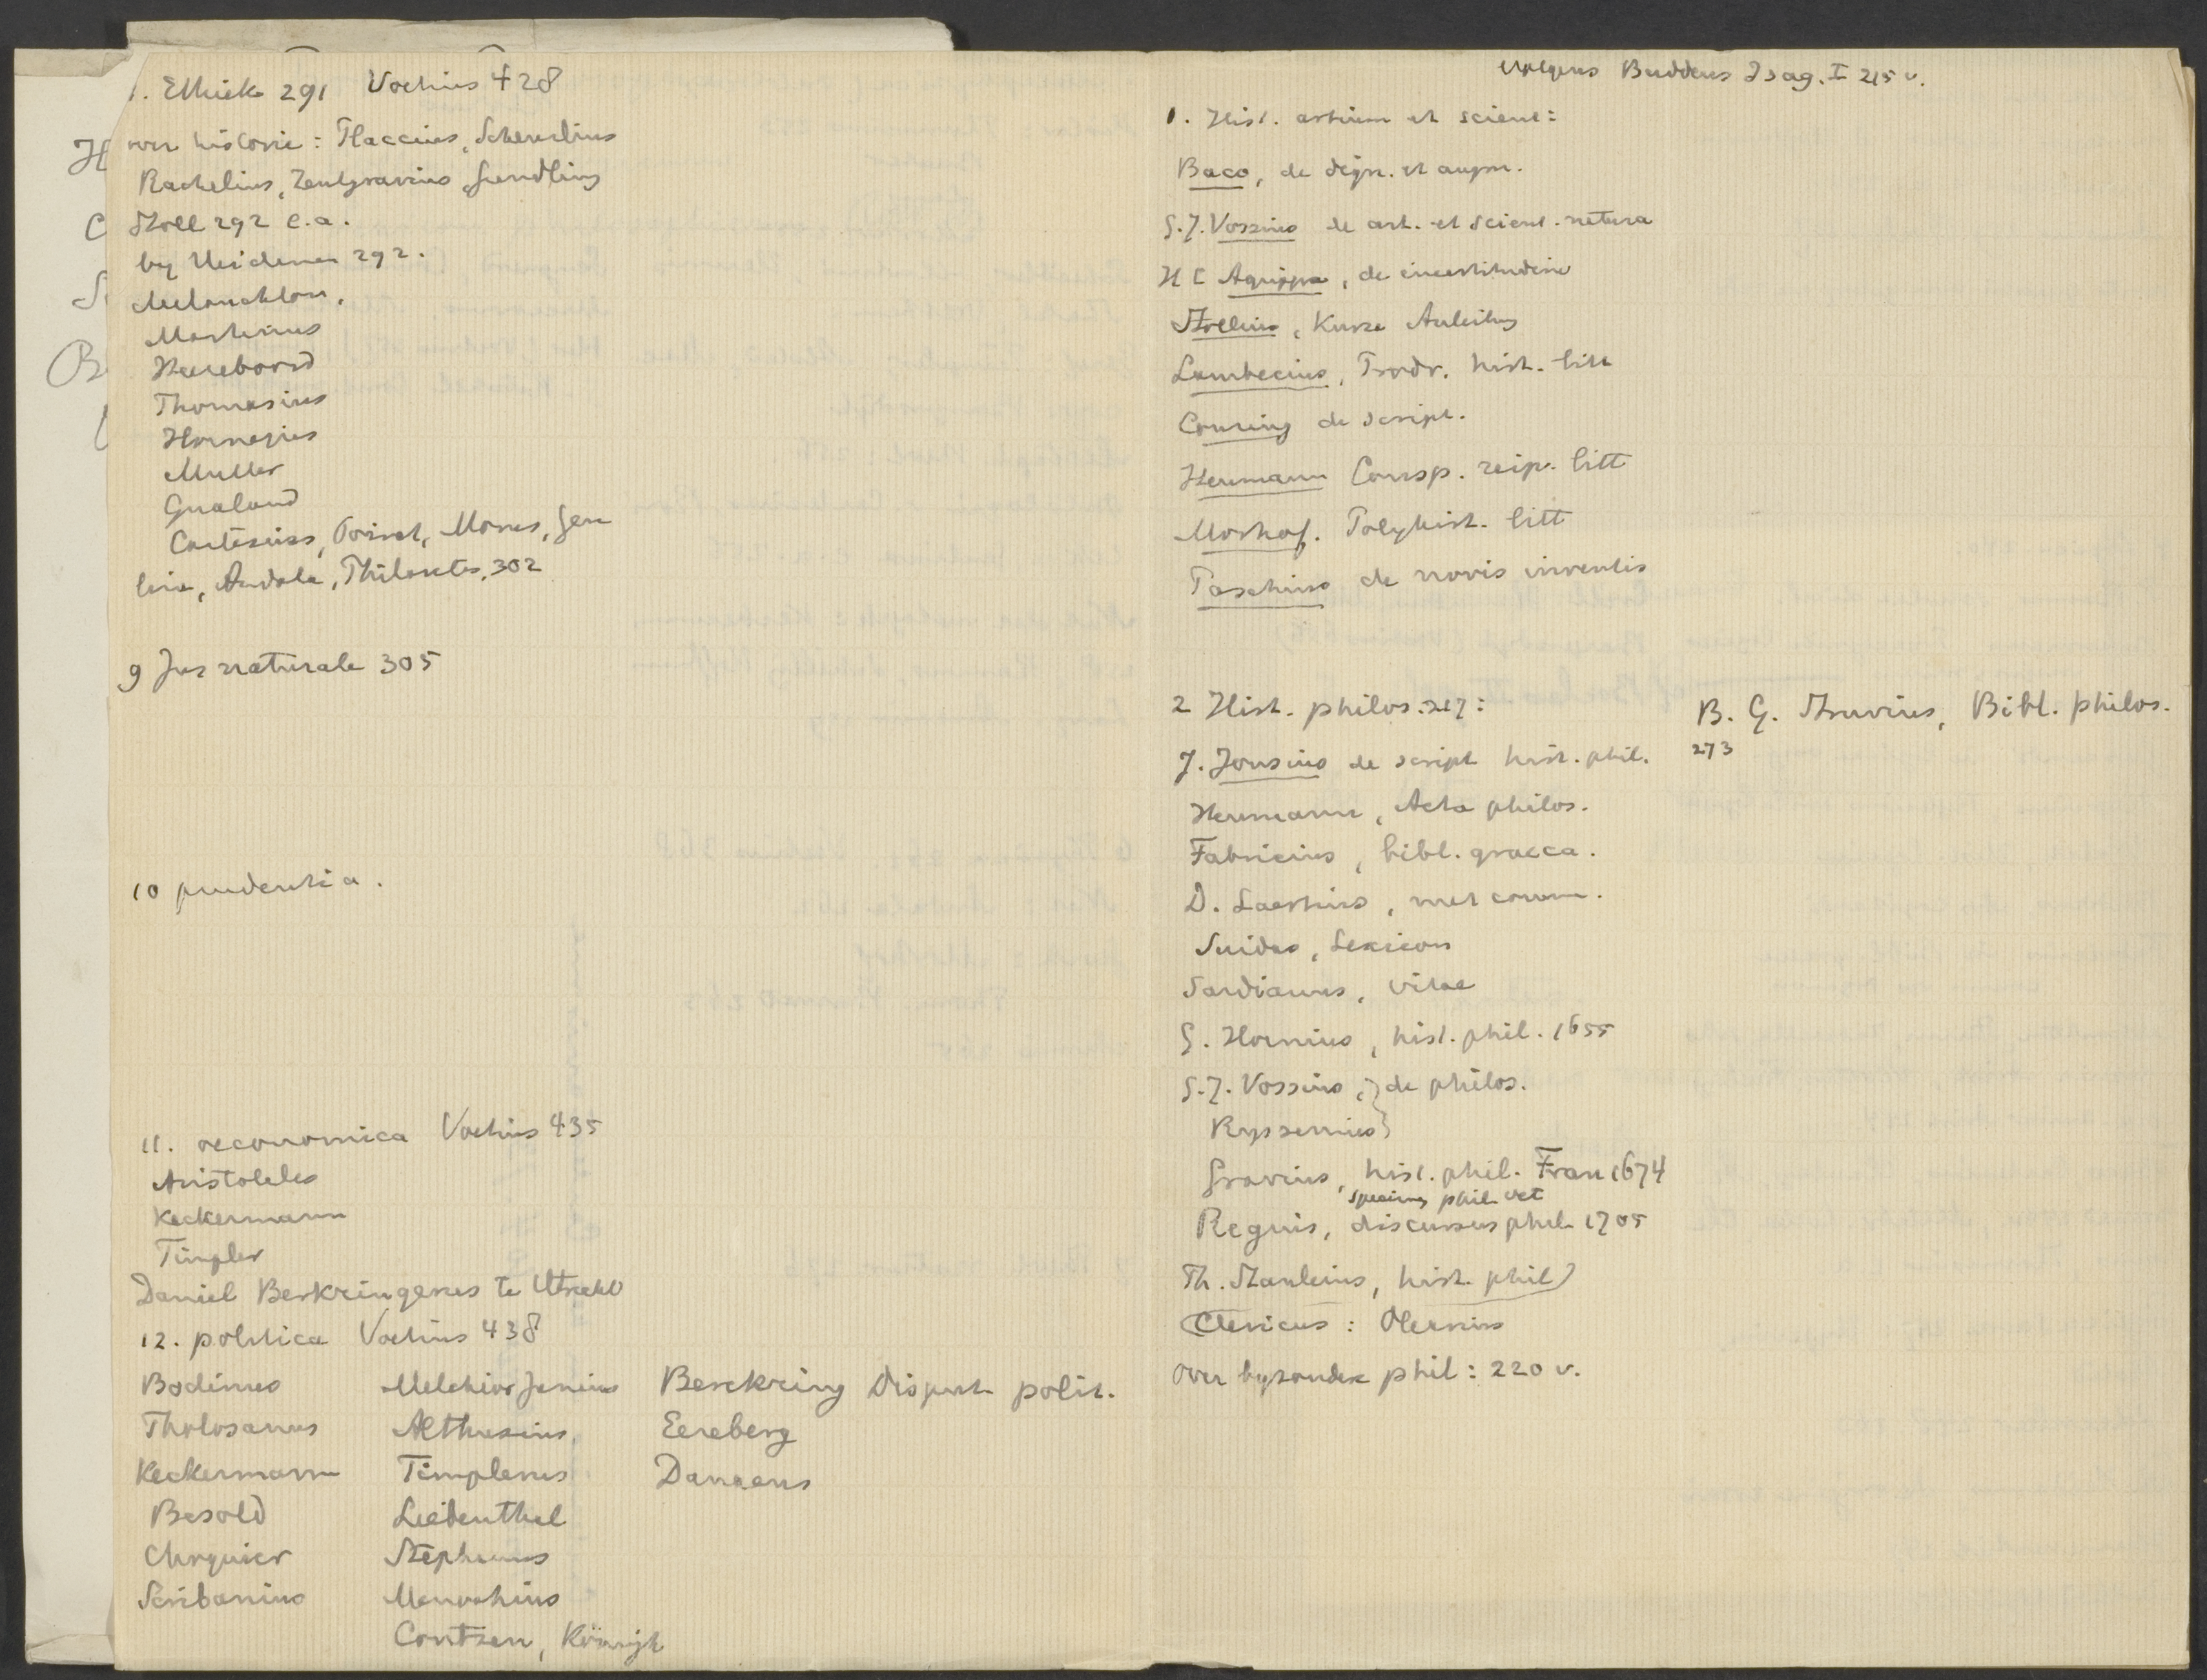 1. Ethiek 291 Voetius 428
over historie: Placcius, Scheurlius
Rachelius, Zentgravius, Gundling
Stoll 292 e.a.
by Heidenen 292.
Melanchton,
Martinius
Heereboord
Thomasius
Hornejus
Muller
Gualand
Cartesius, Poiret, Morus, Geu
linx, Andala, Philaretes, 302
9 Jus naturale 305
10 prudentia.
11. oeconomica Voetius 435
Aristoteles
Keckermann
Timpler
Daniel Berkringerus te Utrecht
12. politica Voetius 438
Bodinus Melchior Junius Berckring Disput polit.
Tholosanus Althusius Eereberg
Keckermann Timplerus Danaeus
Besold Liebenthal
Choquier Stephanus
Scribanius Menochius
Contzen, König
volgens Buddeus Isag. I 215 v.
1. Hist. artium et scient:
Baco, de dign. et augm.
G.J. Vossius de art. et scient. natura
H C Agrippa, de incertitudine
Stollius, Kurze Anleitung
Lambecius, Prodr. hist. litt
Conring de script.
Heumann Consp. reip. litt
Morhof. Polyhist. litt
Paschius de novis inventis
2 Hist. philos. 217:
J. Jonsius de script hist. phil.
Heumann, Acta philos.
Fabricius, bibl. graeca.
D. Laertius, met comm.
Suidas, Lexicon
Sardianus, vitae
G. Hornius, hist. phil. 1655
G.J. Vossius, } de philos.
Ryssenius }
Gravius, hist. phil. Fran 1674
specimen phil. vet
Reguis, discursus phil. 1705
Th. Stanleius, hist. phil)
Clericus: Olearius
Over byzondere phil: 220 v.
B. G. Struvius, Bibl. philos.
273